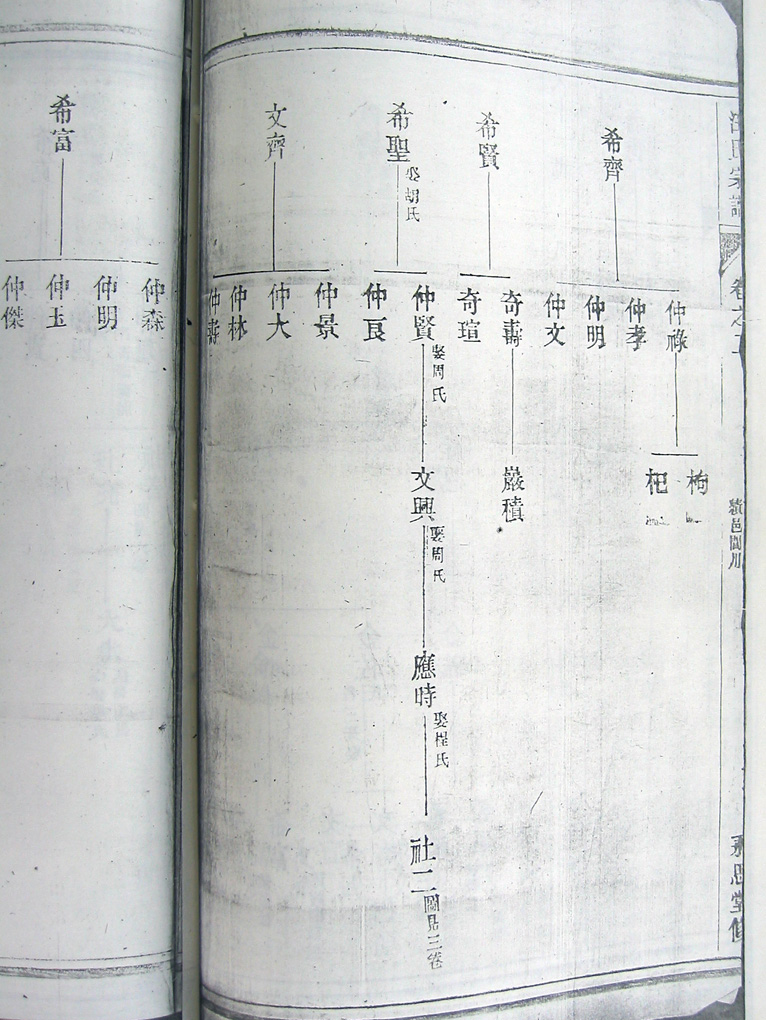 汪氏宗譜
卷之二
績邑
希齊
仲祿
仲孝
仲明
仲文
栒
杞
希賢
奇壽
奇瑄
巖積
希聖
娶胡氏
仲賢
娶周氏
仲良
文興
娶周氏
應時
娶程氏
社二
圖見三卷
文齊
仲景
仲大
仲林
仲壽
希富
仲森
仲明
仲玉
仲傑